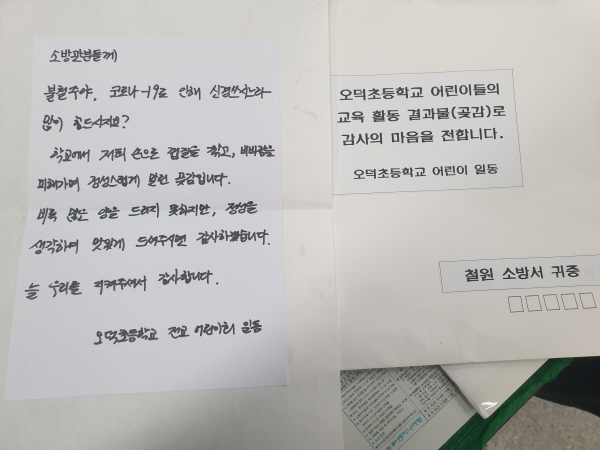 소방관분들께
불철주야, 코로나-19로 인해 신경쓰시느라
많이 힘드시지요?
학교에서 저희 손으로 껍질을 깎고, 비바람을
피해가며 정성스럽게 말린 곶감입니다.
비록 많은 양을 드리지 못하지만, 정성을
생각하여 맛있게 드셔주시면 감사하겠습니다.
늘 우리를 지켜주셔서 감사합니다.
오덕초등학교 전교 어린이회 일동
오덕초등학교 어린이들의
교육 활동 결과물(곶감)로
감사의 마음을 전합니다.
오덕초등학교 어린이 일동
철원 소방서 귀중